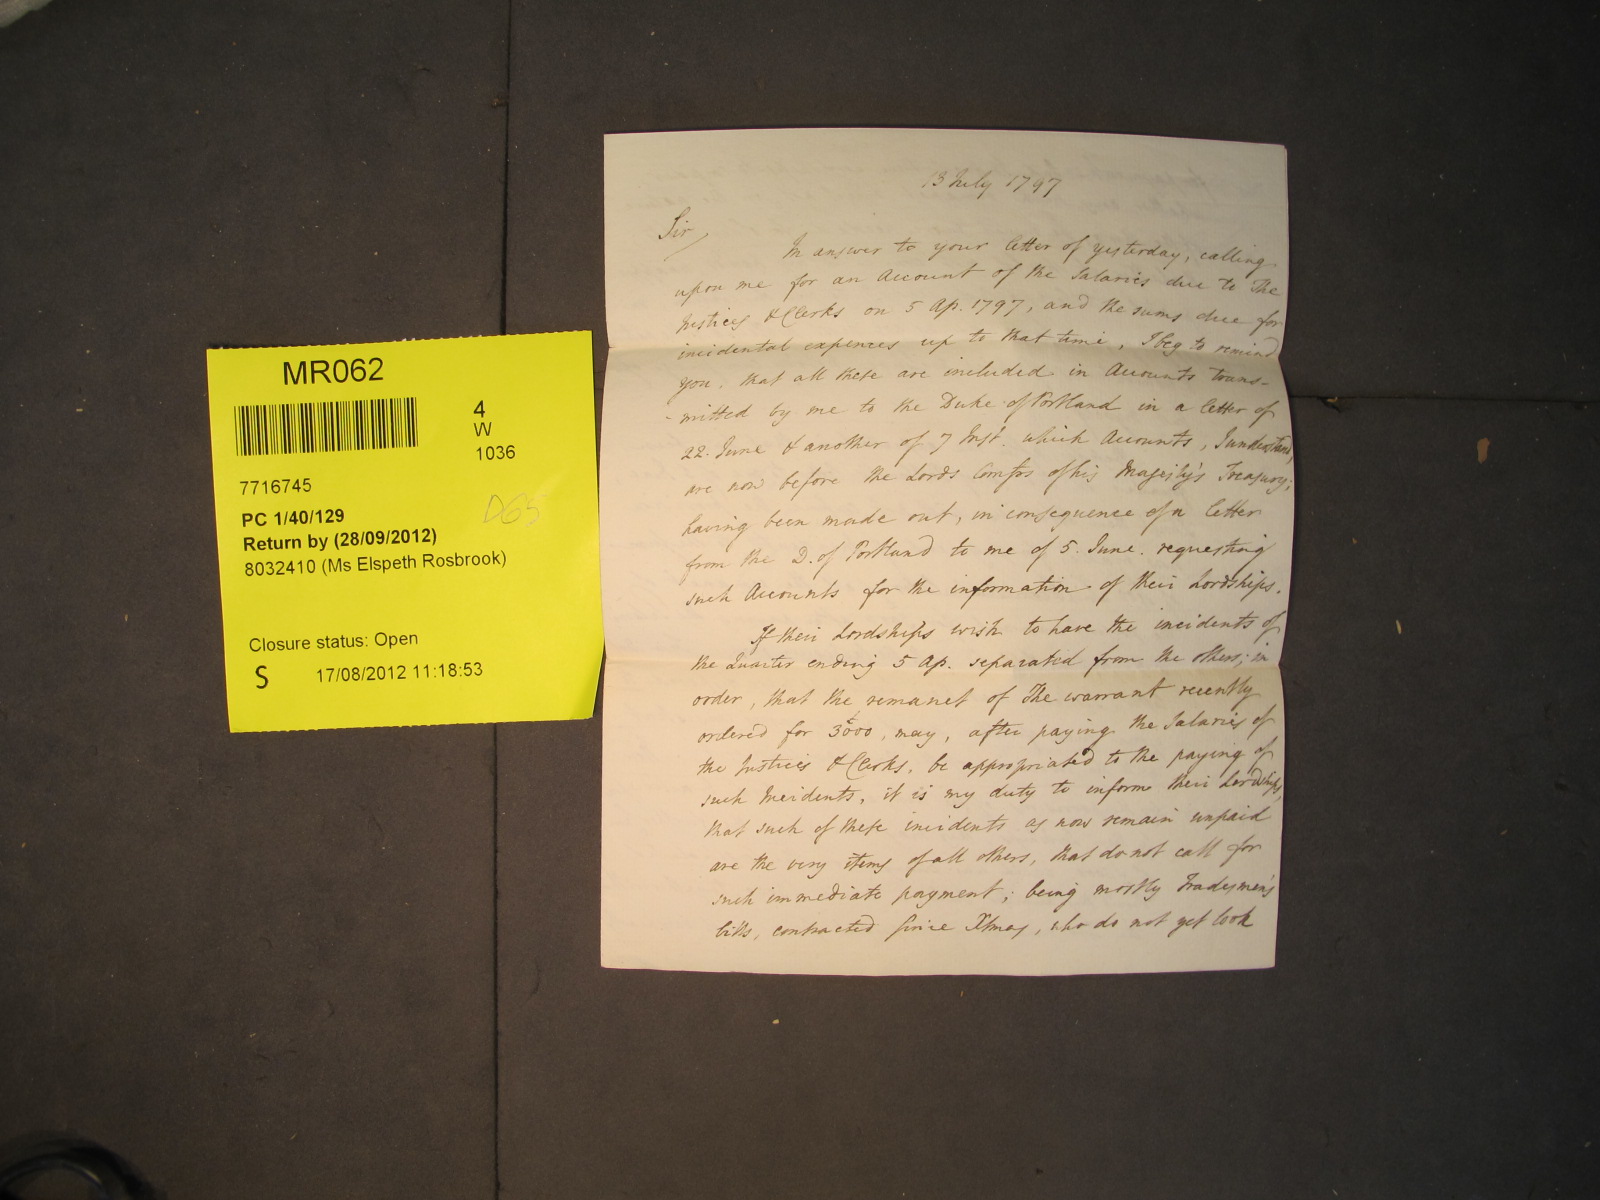 MR062
4
W
1036
7716745
DGS
PC 1/40/129
Return by (28/09/2012)
8032410 (Ms Elspeth Rosbrook)
Closure status: Open
S
17/08/2012 11:18:53
13 July 1797
Sir
In answer to your letter of yesterday, calling
upon me for an Account of the Salaries due to The
Justices & Clerks on 5 Ap. 1797, and the sums due for
incidental expences up to that time, I beg to remind
you, that all these are included in Accounts trans-
-mitted by me to the Duke of Portland in a letter of
22. June & another of 7 Inst. which Accounts, I understand,
are now before the Lords Comss of his Majesty's Treasury;
having been made out, in consequence of a letter
from the D. of Portland to me of 5. June. requesting
such Accounts for the information of their Lordships.
If their Lordships wish to have the incidents of
the Quarter ending 5 Ap. separated from the others; in
order, that the remanet of The warrant recently
ordered for £3000, may, after paying the Salaries of
the Justices & Clerks, be appropriated to the paying of
such Incidents, it is my duty to inform their Lordships,
that such of these incidents as now remain unpaid
are the very items of all others, that do not call for
such immediate payment; being mostly Tradesmen's
bills, contracted since Xmas, who do not yet look